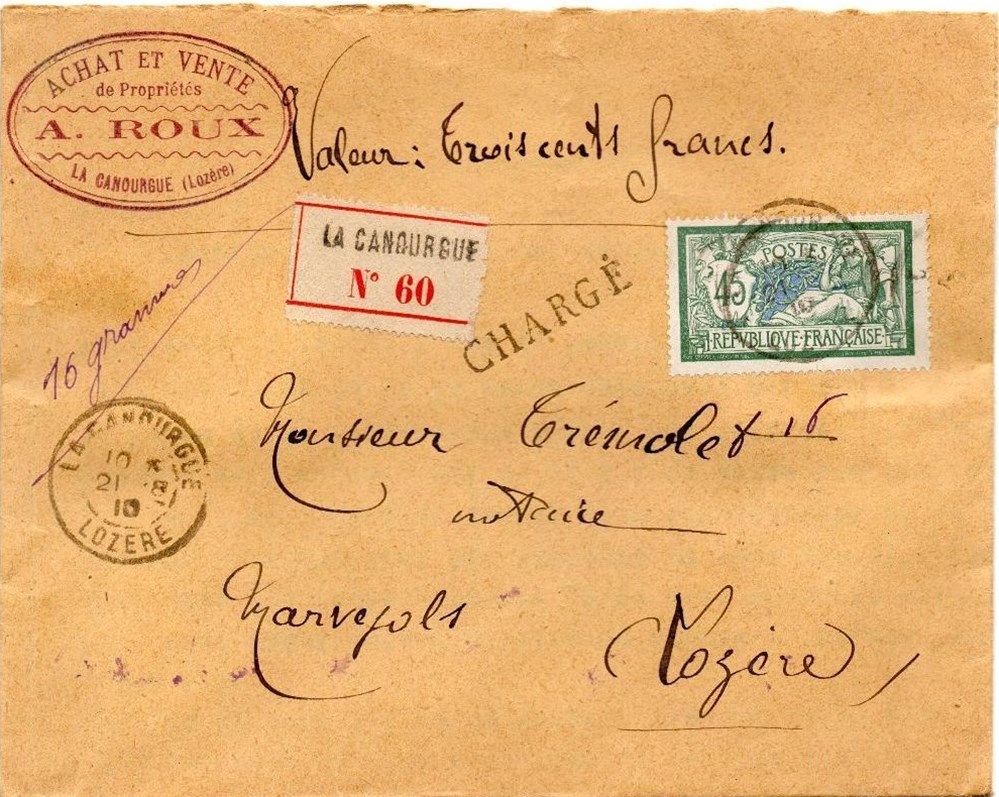 ACHAT ET VENTE
de Propriétés
A. ROUX
LA CANOURGUE (Lozère)
Valeur : Trois cents francs.
LA CANOURGUE
N° 60
CHARGÉ
POSTES
45
REPVBLIQVE FRANÇAISE
16 grammes
LA CANOURGUE
10
21 - 8
10
LOZERE
Monsieur Trémolet 16
notaire
Marvejols
Lozère